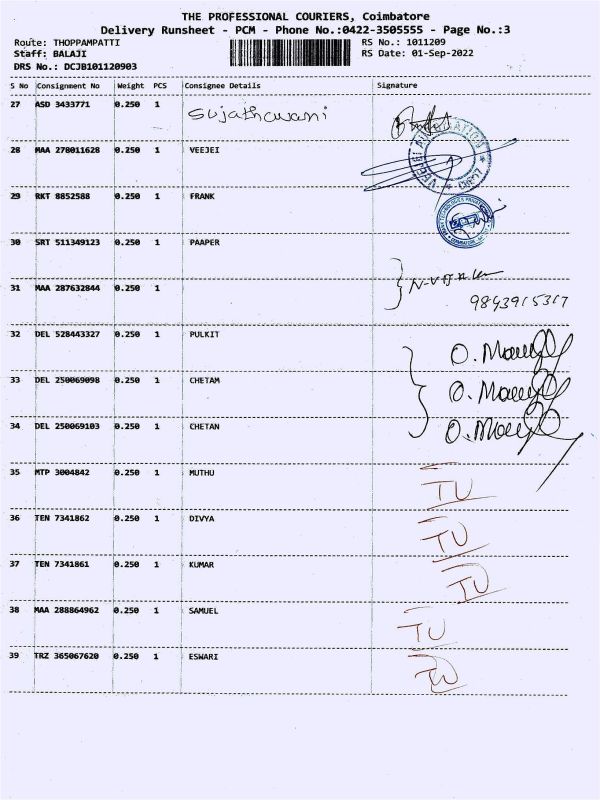 THE PROFESSIONAL COURIERS, Coimbatore
Delivery Runsheet - PCM - Phone No.:0422-3505555 - Page No.:3
Route: THOPPAMPATTI RS No.: 1011209
Staff: BALAJI RS Date: 01-Sep-2022
DRS No.: DCJB101120903
S No Consignment No Weight PCS Consignee Details Signature
27 ASD 3433771 0.250 1 Sujathawani
28 MAA 278011628 0.250 1 VEEJEI
29 RKT 8852588 0.250 1 FRANK
30 SRT 511349123 0.250 1 PAAPER
31 MAA 287632844 0.250 1
9843915317
32 DEL 528443327 0.250 1 PULKIT
33 DEL 250069098 0.250 1 CHETAM
34 DEL 250069103 0.250 1 CHETAN
35 MTP 3004842 0.250 1 MUTHU
36 TEN 7341862 0.250 1 DIVYA
37 TEN 7341861 0.250 1 KUMAR
38 MAA 288864962 0.250 1 SAMUEL
39 TRZ 365067620 0.250 1 ESWARI